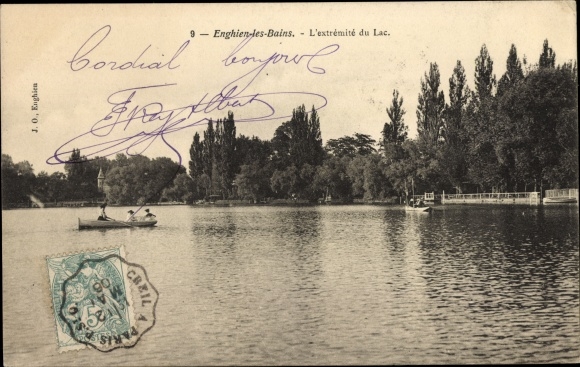 9 — Enghien-les-Bains. - L'extrémité du Lac.
Cordial bonjour
J. O., Enghien
5
CREIL A PARIS